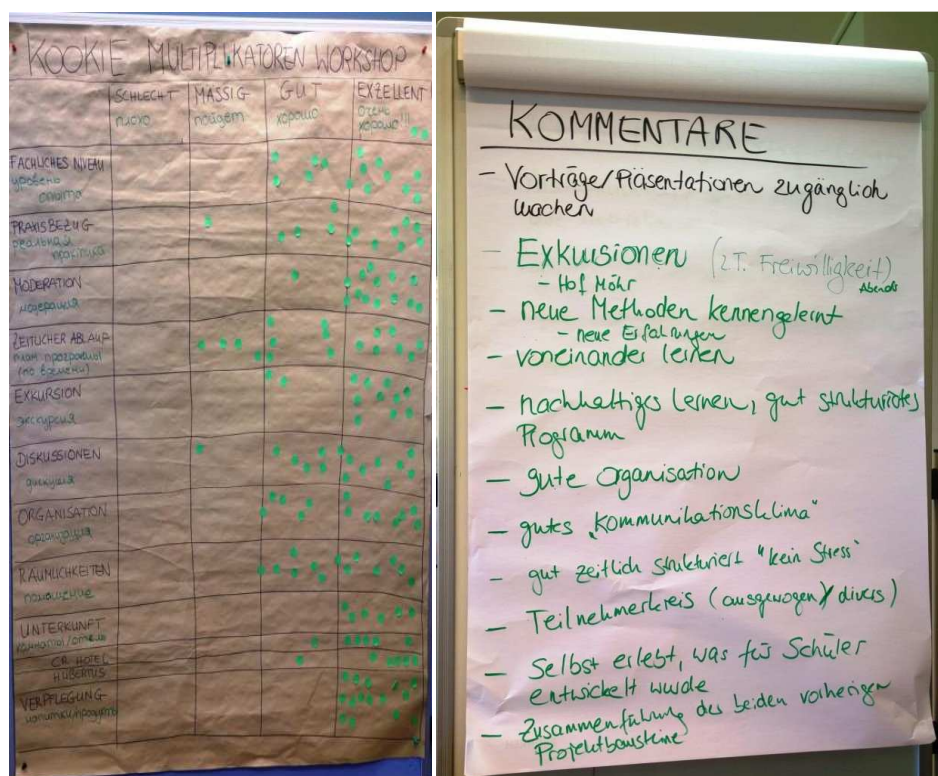 KOOKIE MULTIPLIKATOREN WORKSHOP
SCHLECHT MÄSSIG GUT EXZELLENT
плохо пойдёт хорошо очень
хорошо!!!
FACHLICHES NIVEAU
уровень
опыта
PRAXISBEZUG
реальная
практика
MODERATION
модерация
ZEITLICHER ABLAUF
план программы
(по времени)
EXKURSION
экскурсия
DISKUSSIONEN
дискуссия
ORGANISATION
организация
RÄUMLICHKEITEN
помещение
UNTERKUNFT
комнаты/отель
CR HOTEL
HUBERTUS
VERPFLEGUNG
KOMMENTARE
- Vorträge/Präsentationen zugänglich
machen
- Exkursionen (z.T. Freiwilligkeit)
Abends
- Hof Möhr
- neue Methoden kennengelernt
- neue Erfahrungen
- voneinander lernen
- nachhaltiges lernen, gut strukturiertes
Programm
- gute Organisation
- gutes „Kommunikationsklima"
- gut zeitlich strukturiert "kein Stress"
- Teilnehmerkreis (ausgewogen / divers)
- Selbst erlebt, was für Schüler
entwickelt wurde
- Zusammenführung der beiden vorherigen
Projektbausteine